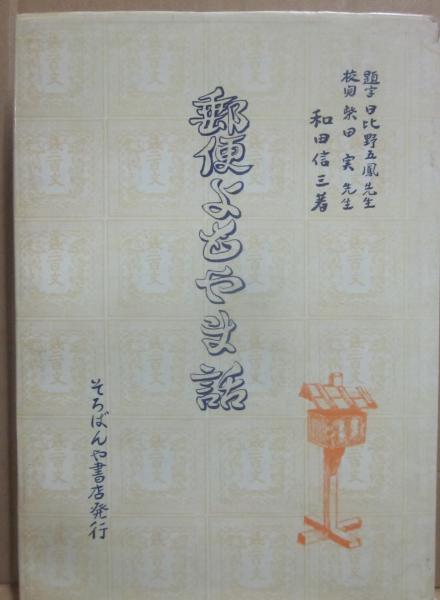 題字日比野五鳳先生
校閲柴田実先生
和田信三著
郵便よもやま話
そろばんや書店発行